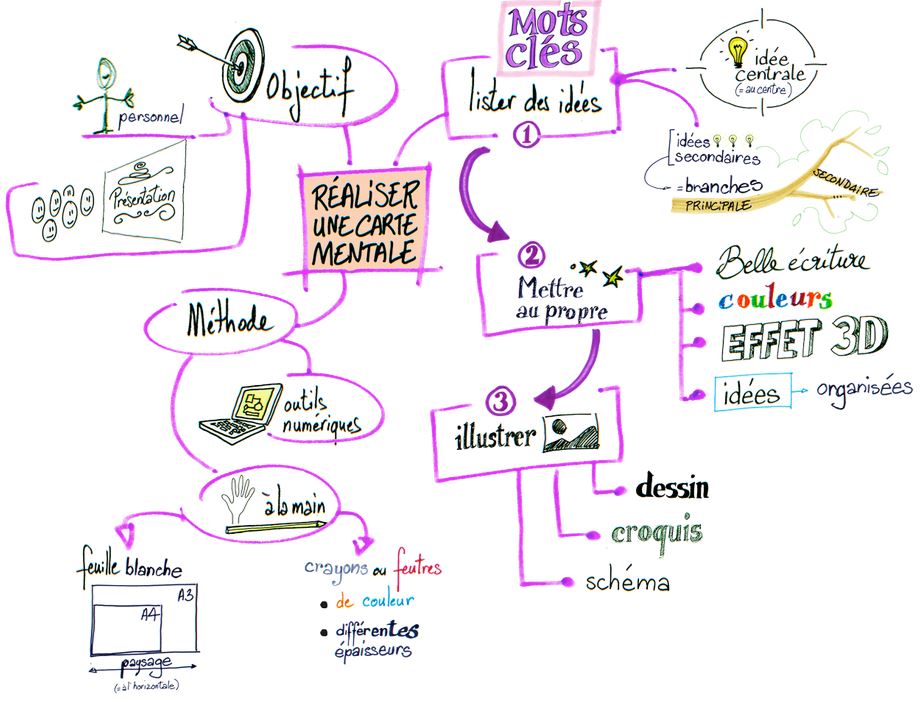 Mots
clés
Objectif
personnel
Présentation
lister des idées
1
idée
centrale
(= au centre)
idées
secondaires
= branches
PRINCIPALE
SECONDAIRE
RÉALISER
UNE CARTE
MENTALE
2
Mettre
au propre
Belle écriture
couleurs
EFFET 3D
idées → organisées
Méthode
outils
numériques
3
illustrer
dessin
croquis
schéma
à la main
feuille blanche
A3
A4
paysage
(= à l'horizontale)
crayons ou feutres
• de couleur
• différentes
épaisseurs